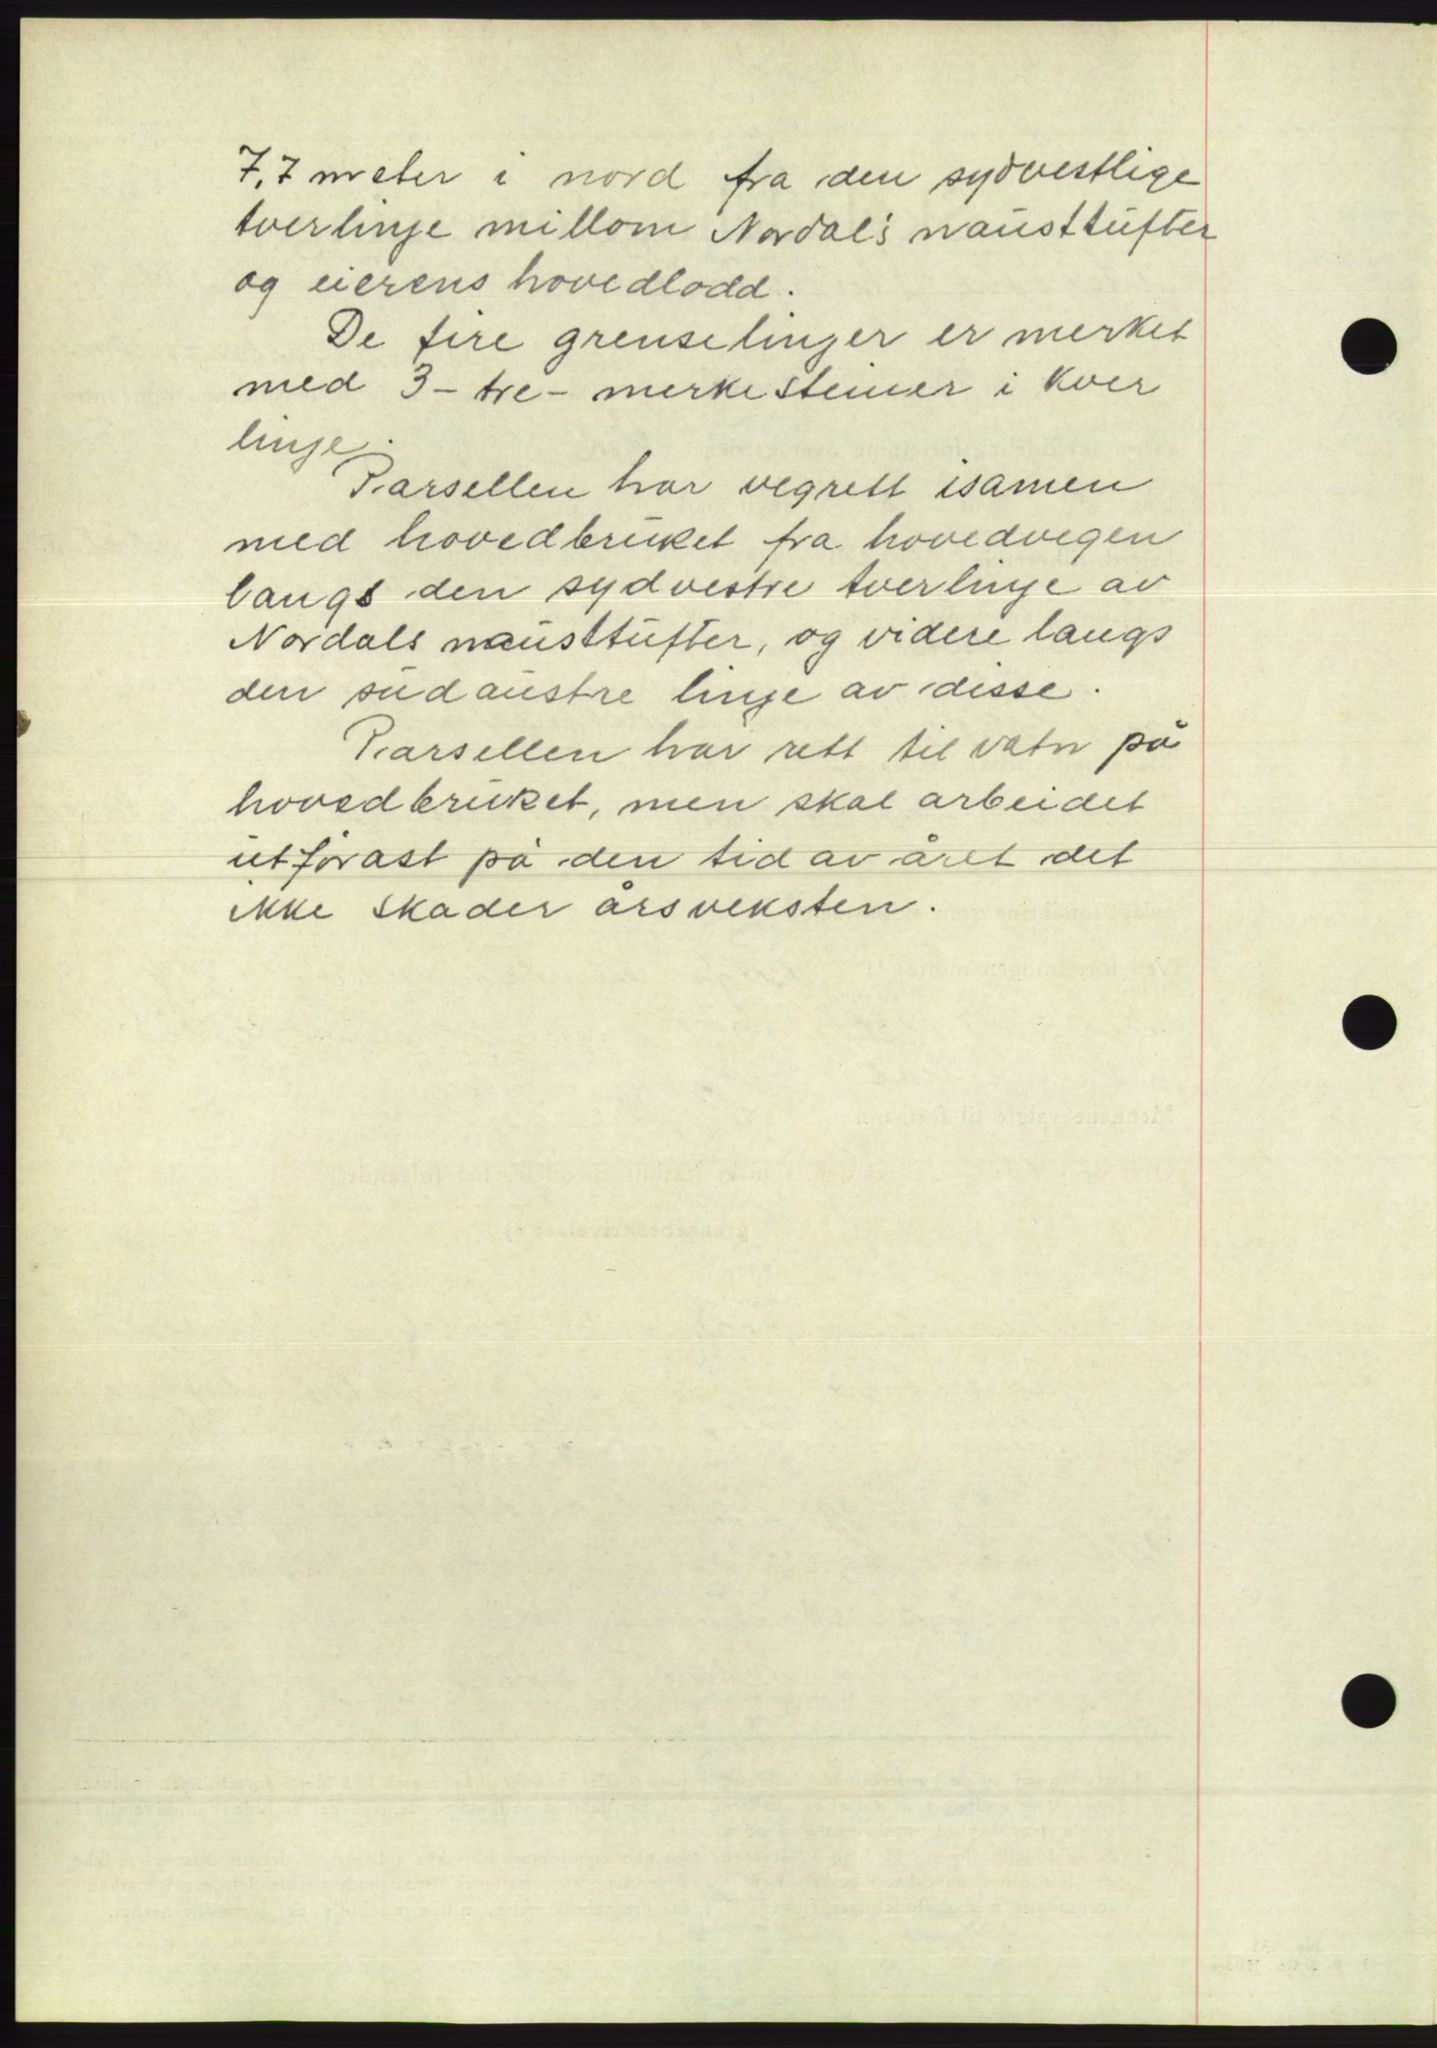 7,7 meter i nord fra den sydvestlige
tverlinje millom Nordal's nausttufter
og eierens hovedlodd.
De fire grenselinjer er merket
med 3 - tre - merkesteiner i kver
linje.
Parsellen har vegrett isamen
med hovedbruket fra hovedvegen
langs den sydvestre tverlinje av
Nordals nausttufter, og videre langs
den sudaustre linje av disse.
Parsellen har rett til vatn på
hovedbruket, men skal arbeidet
utførast på den tid av året det
ikke skader årsveksten.